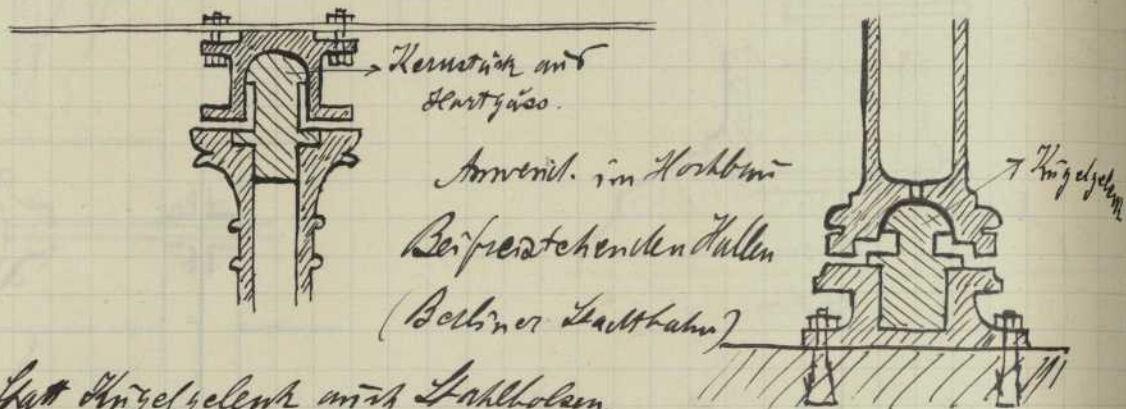 Kernstück aus
Hartguss.
Anwend. im Hochbau
Bei freistehenden Hallen
(Berliner Stadtbahn)
Kugelgelenk
Statt Kugelgelenk auch Stahlbolzen